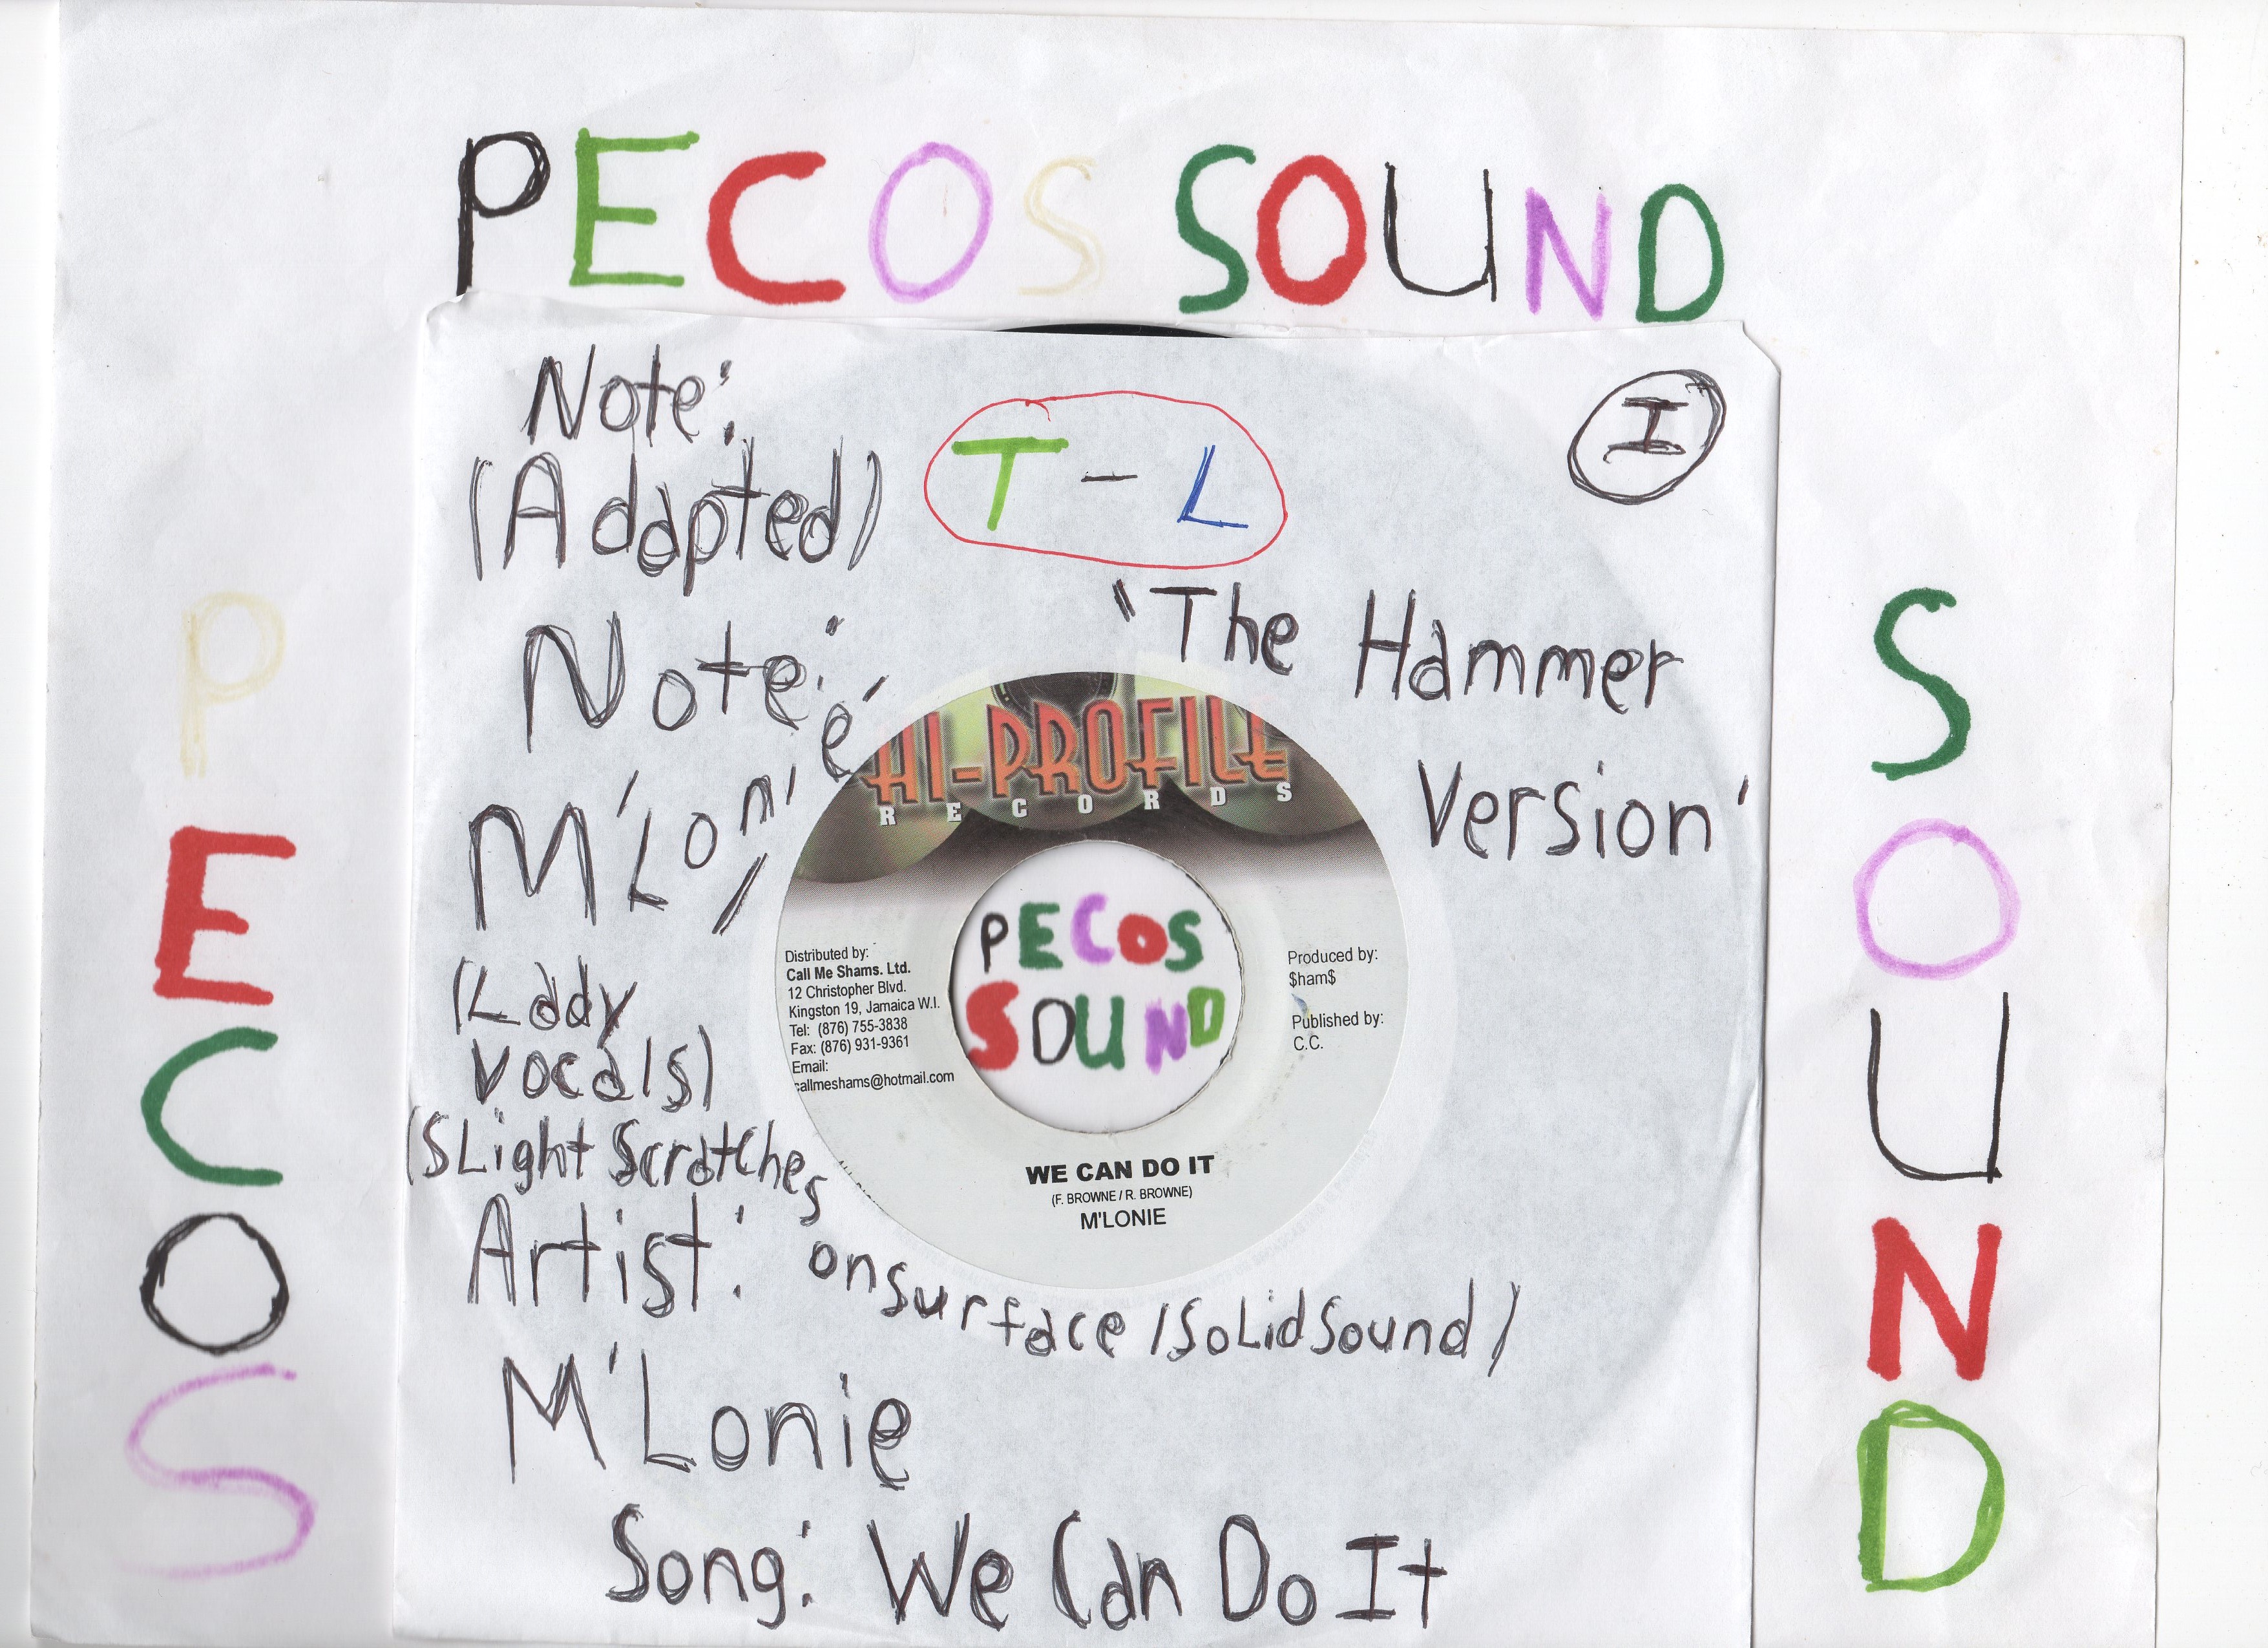 PECOS SOUND
Note:
(Adapted)
T - L
I
'The Hammer
Version'
Note:
'M'Lonie'
(Lady
vocals)
(Slight Scratches
on surface / Solid Sound)
Artist:
M'Lonie
Song: We Can Do It
PECOS
SOUND
HI-PROFILE
RECORDS
Distributed by:
Call Me Shams. Ltd.
12 Christopher Blvd.
Kingston 19, Jamaica W.I.
Tel: (876) 755-3838
Fax: (876) 931-9361
Email:
callmeshams@hotmail.com
PECOS
SOUND
Produced by:
$ham$
Published by:
C.C.
WE CAN DO IT
(F. BROWNE / R. BROWNE)
M'LONIE